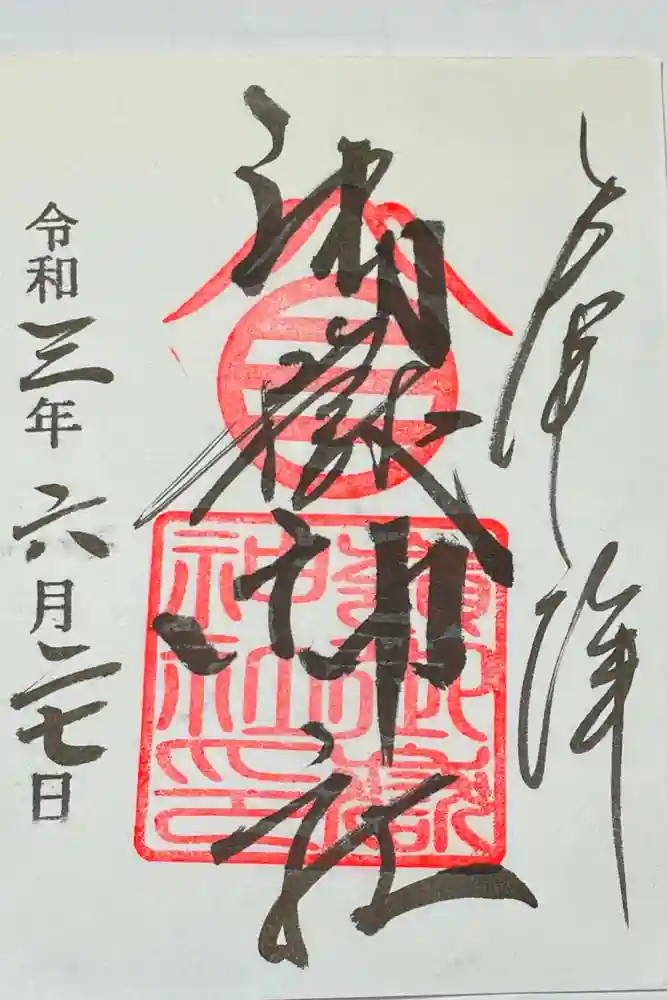 御嶽神社
嶺御嶽
神社印
令和三年六月二七日